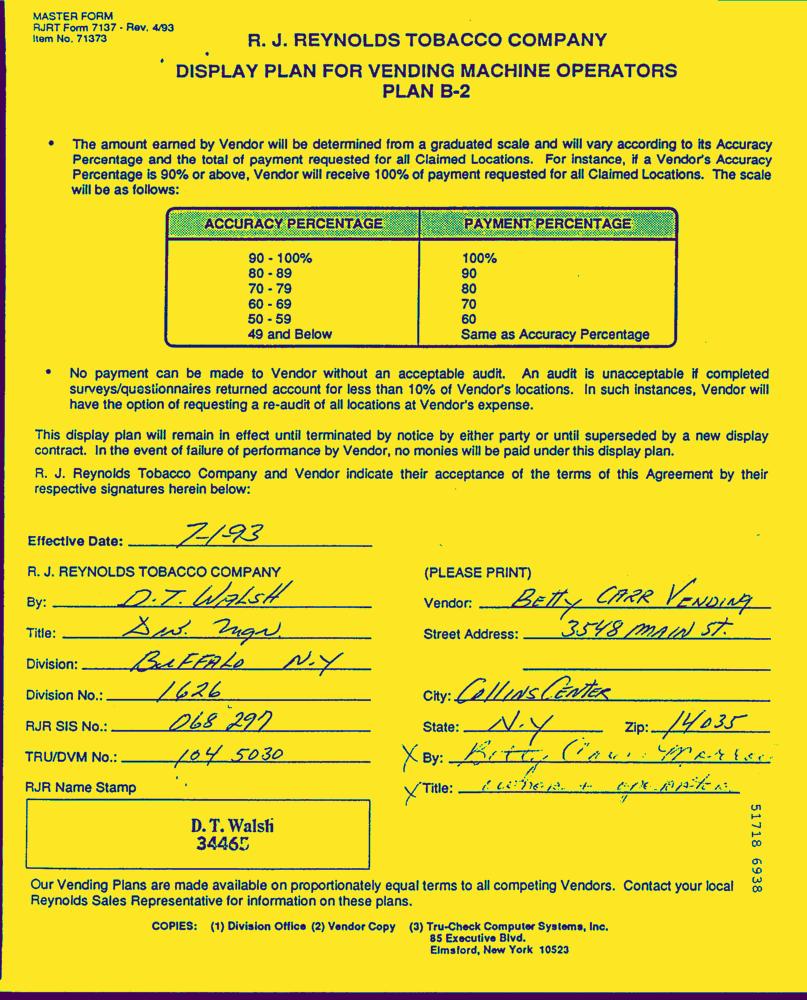 MASTER FORM
RJRT Form 7137 - Rev. 4/93
Item No. 71373
R. J. REYNOLDS TOBACCO COMPANY
DISPLAY PLAN FOR VENDING MACHINE OPERATORS
PLAN B-2
• The amount earned by Vendor will be determined from a graduated scale and will vary according to its Accuracy
Percentage and the total of payment requested for all Claimed Locations. For instance, if a Vendor's Accuracy
Percentage is 90% or above, Vendor will receive 100% of payment requested for all Claimed Locations. The scale
will be as follows:
ACCURACY PERCENTAGE PAYMENT PERCENTAGE
90 - 100% 100%
80 - 89 90
70 - 79 80
60 - 69 70
50 - 59 60
49 and Below Same as Accuracy Percentage
• No payment can be made to Vendor without an acceptable audit. An audit is unacceptable if completed
surveys/questionnaires returned account for less than 10% of Vendor's locations. In such instances, Vendor will
have the option of requesting a re-audit of all locations at Vendor's expense.
This display plan will remain in effect until terminated by notice by either party or until superseded by a new display
contract. In the event of failure of performance by Vendor, no monies will be paid under this display plan.
R. J. Reynolds Tobacco Company and Vendor indicate their acceptance of the terms of this Agreement by their
respective signatures herein below:
Effective Date: 7-1-93
R. J. REYNOLDS TOBACCO COMPANY (PLEASE PRINT)
By: D.T. WALSH Vendor: BETTY CARR VENDING
Title: Div. Mgr. Street Address: 3548 MAIN ST.
Division: BUFFALO N.Y
Division No.: 1626 City: COLLINS CENTER
RJR SIS No.: 068 297 State: N.Y Zip: 14035
TRU/DVM No.: 104 5030 X By: Betty Carr
RJR Name Stamp X Title: owner + operator
D. T. Walsh
34465
51718 6938
Our Vending Plans are made available on proportionately equal terms to all competing Vendors. Contact your local
Reynolds Sales Representative for information on these plans.
COPIES: (1) Division Office (2) Vendor Copy (3) Tru-Check Computer Systems, Inc.
85 Executive Blvd.
Elmsford, New York 10523